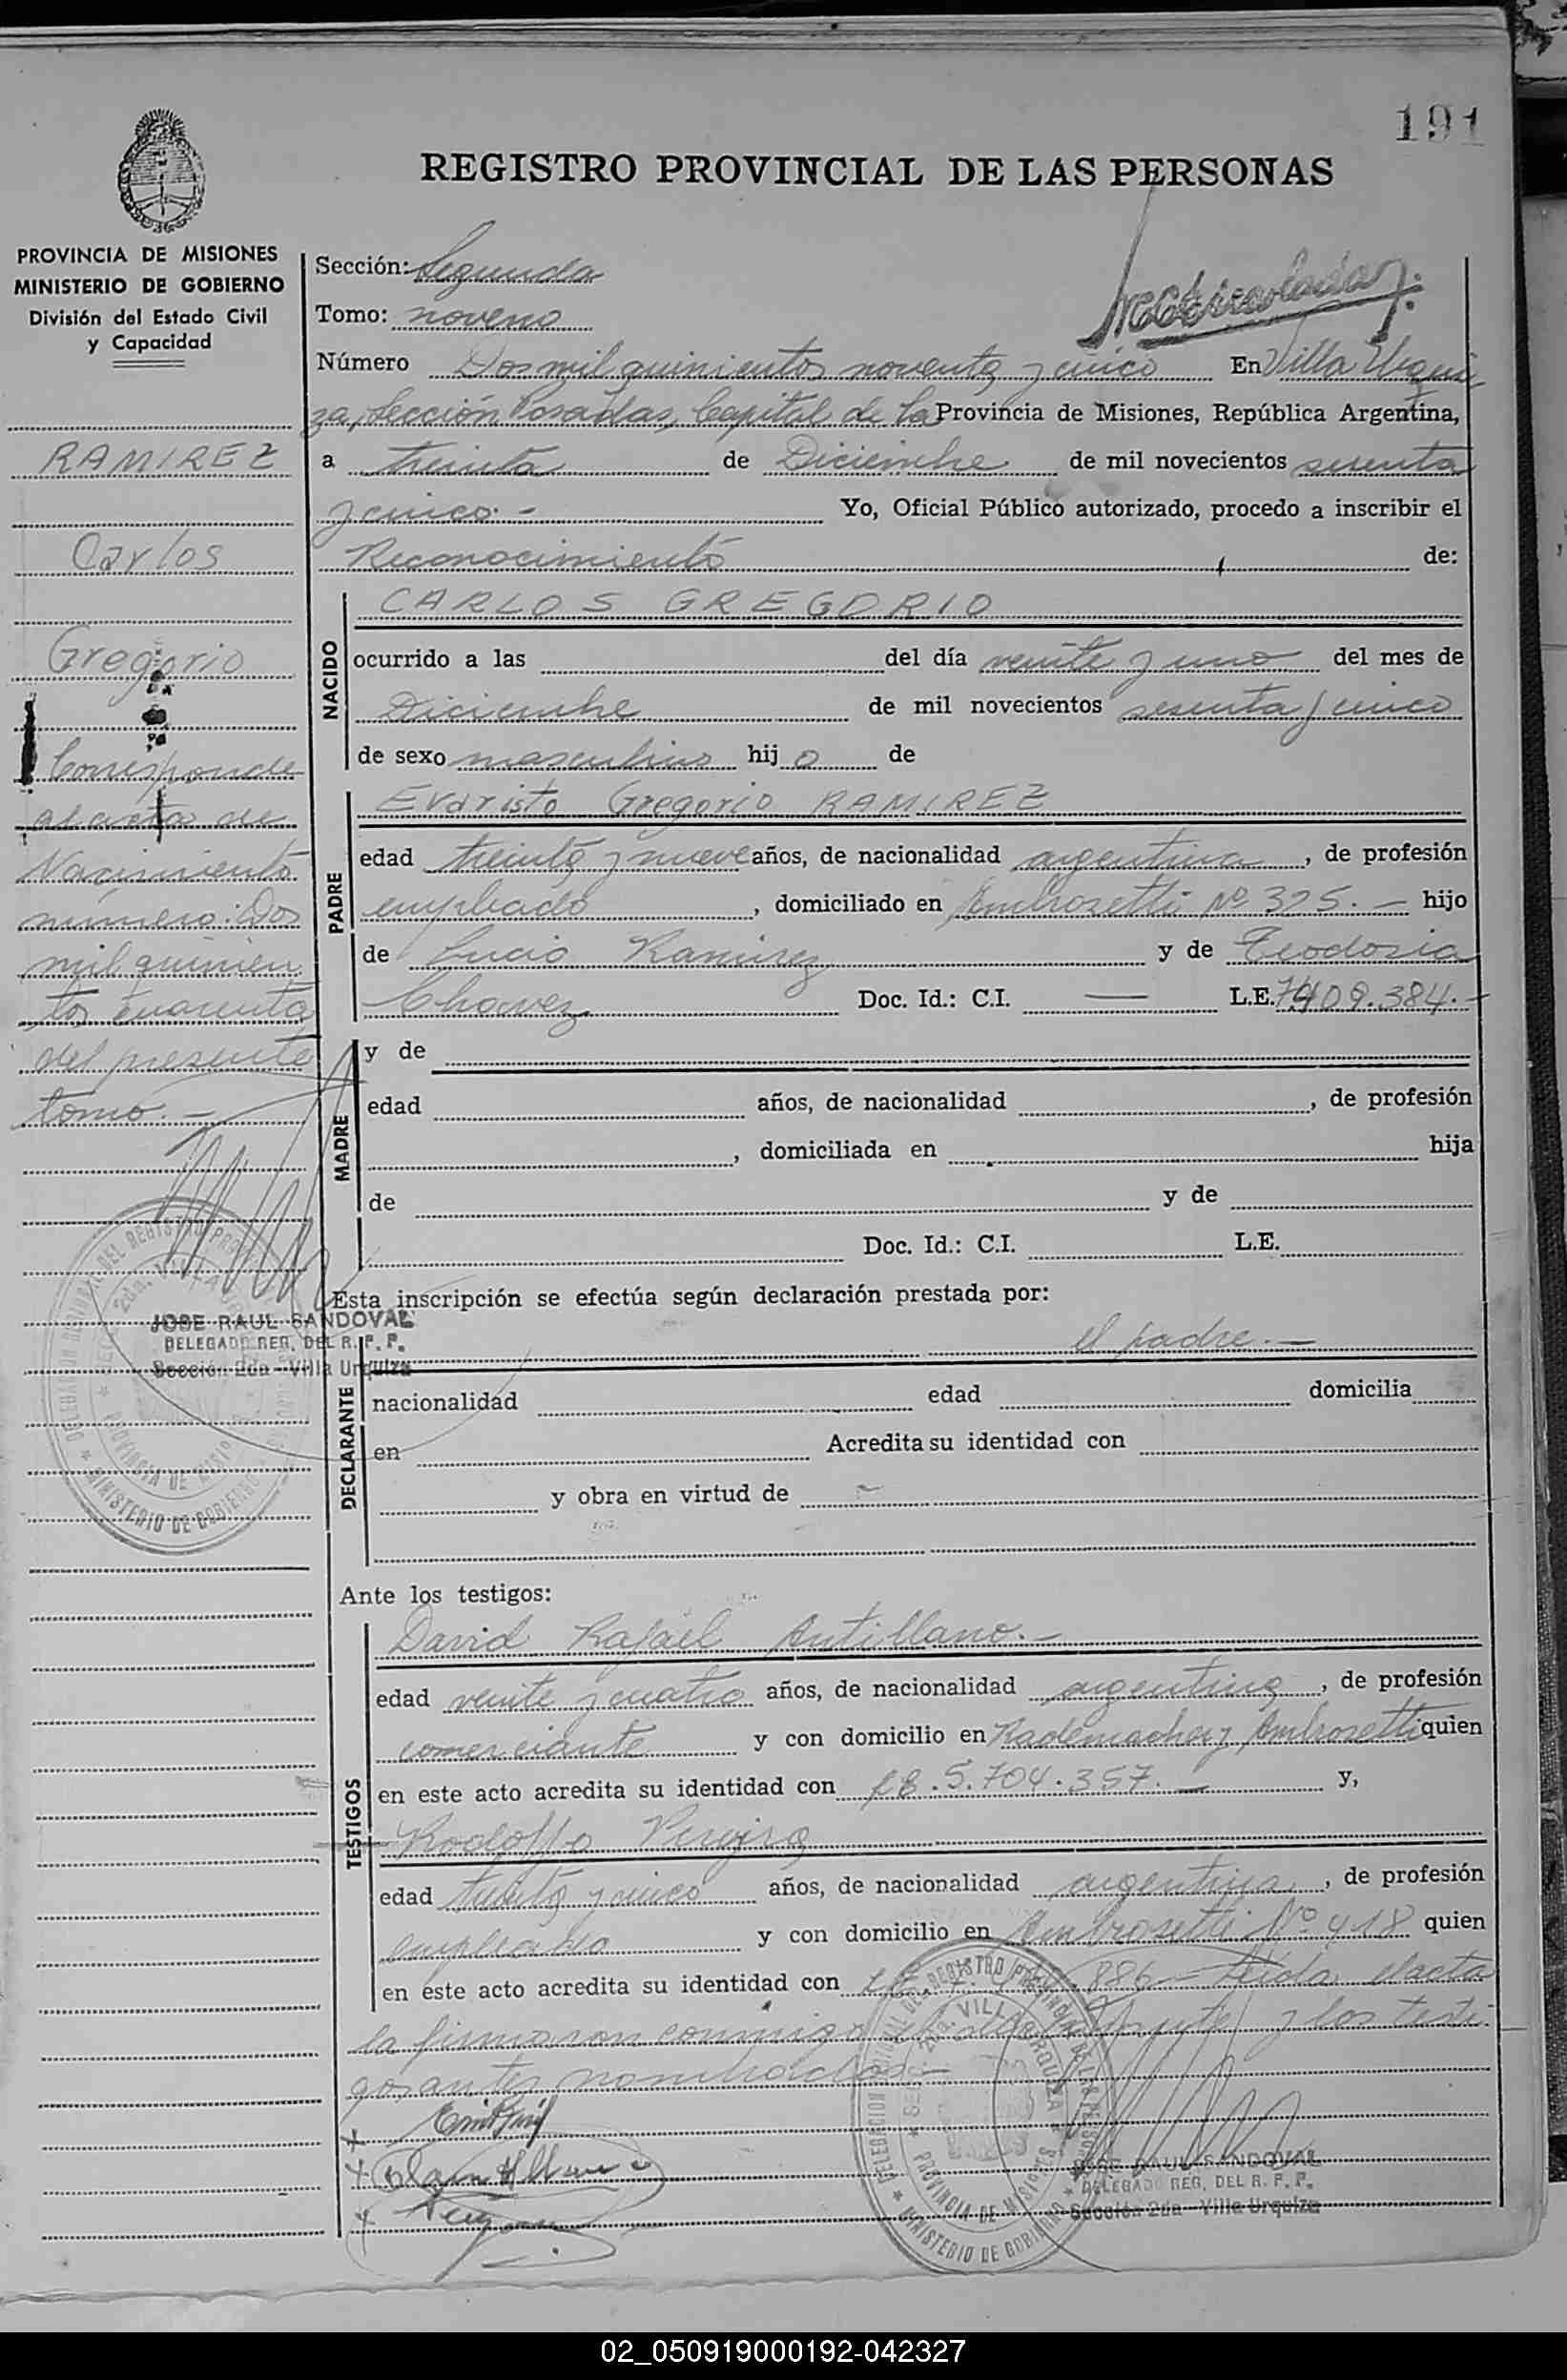 191
REGISTRO PROVINCIAL DE LAS PERSONAS
PROVINCIA DE MISIONES
MINISTERIO DE GOBIERNO
División del Estado Civil
y Capacidad
RAMIREZ
Carlos
Gregorio
Corresponde
al acta de
Nacimiento
número: Dos
mil quinien
tos cuarenta
del presente
tomo.-
JOSE RAUL SANDOVAL
DELEGADO REG. DEL R. P. P.
Sección 2da - Villa Urquiza
Sección: Segunda
Tomo: noveno
Número Dos mil quinientos noventa y cinco En Villa Urqui
za, Sección Posadas, Capital de la Provincia de Misiones, República Argentina,
a treinta de Diciembre de mil novecientos sesenta
y cinco.- Yo, Oficial Público autorizado, procedo a inscribir el
Reconocimiento de:
NACIDO
CARLOS GREGORIO
ocurrido a las del día veinte y uno del mes de
Diciembre de mil novecientos sesenta y cinco
de sexo masculino hijo de
PADRE
Evaristo Gregorio RAMIREZ
edad treinta y nueve años, de nacionalidad argentina, de profesión
empleado, domiciliado en Ambrosetti Nº 325.- hijo
de Lucio Ramirez y de Teodosia
Chavez Doc. Id.: C.I. — L.E.
MADRE
y de
edad años, de nacionalidad , de profesión
, domiciliada en hija
de y de
Doc. Id.: C.I. L.E.
Esta inscripción se efectúa según declaración prestada por:
el padre.-
DECLARANTE
nacionalidad edad domicilia
en Acredita su identidad con
y obra en virtud de
Ante los testigos:
TESTIGOS
David Rafael Antillano.-
edad veinte y cuatro años, de nacionalidad argentina, de profesión
comerciante y con domicilio en Rademacher y Ambrosetti quien
en este acto acredita su identidad con 5.704.357.- y,
Rodolfo Pereira
edad treinta y cinco años, de nacionalidad argentina, de profesión
empleado y con domicilio en Ambrosetti Nº 418 quien
en este acto acredita su identidad con 886- Leída el acta
la firmaron conmigo y los testi
gos antes nombrados.-
JOSE RAUL SANDOVAL
DELEGADO REG. DEL R. P. P.
Sección 2da - Villa Urquiza
02_050919000192-042327